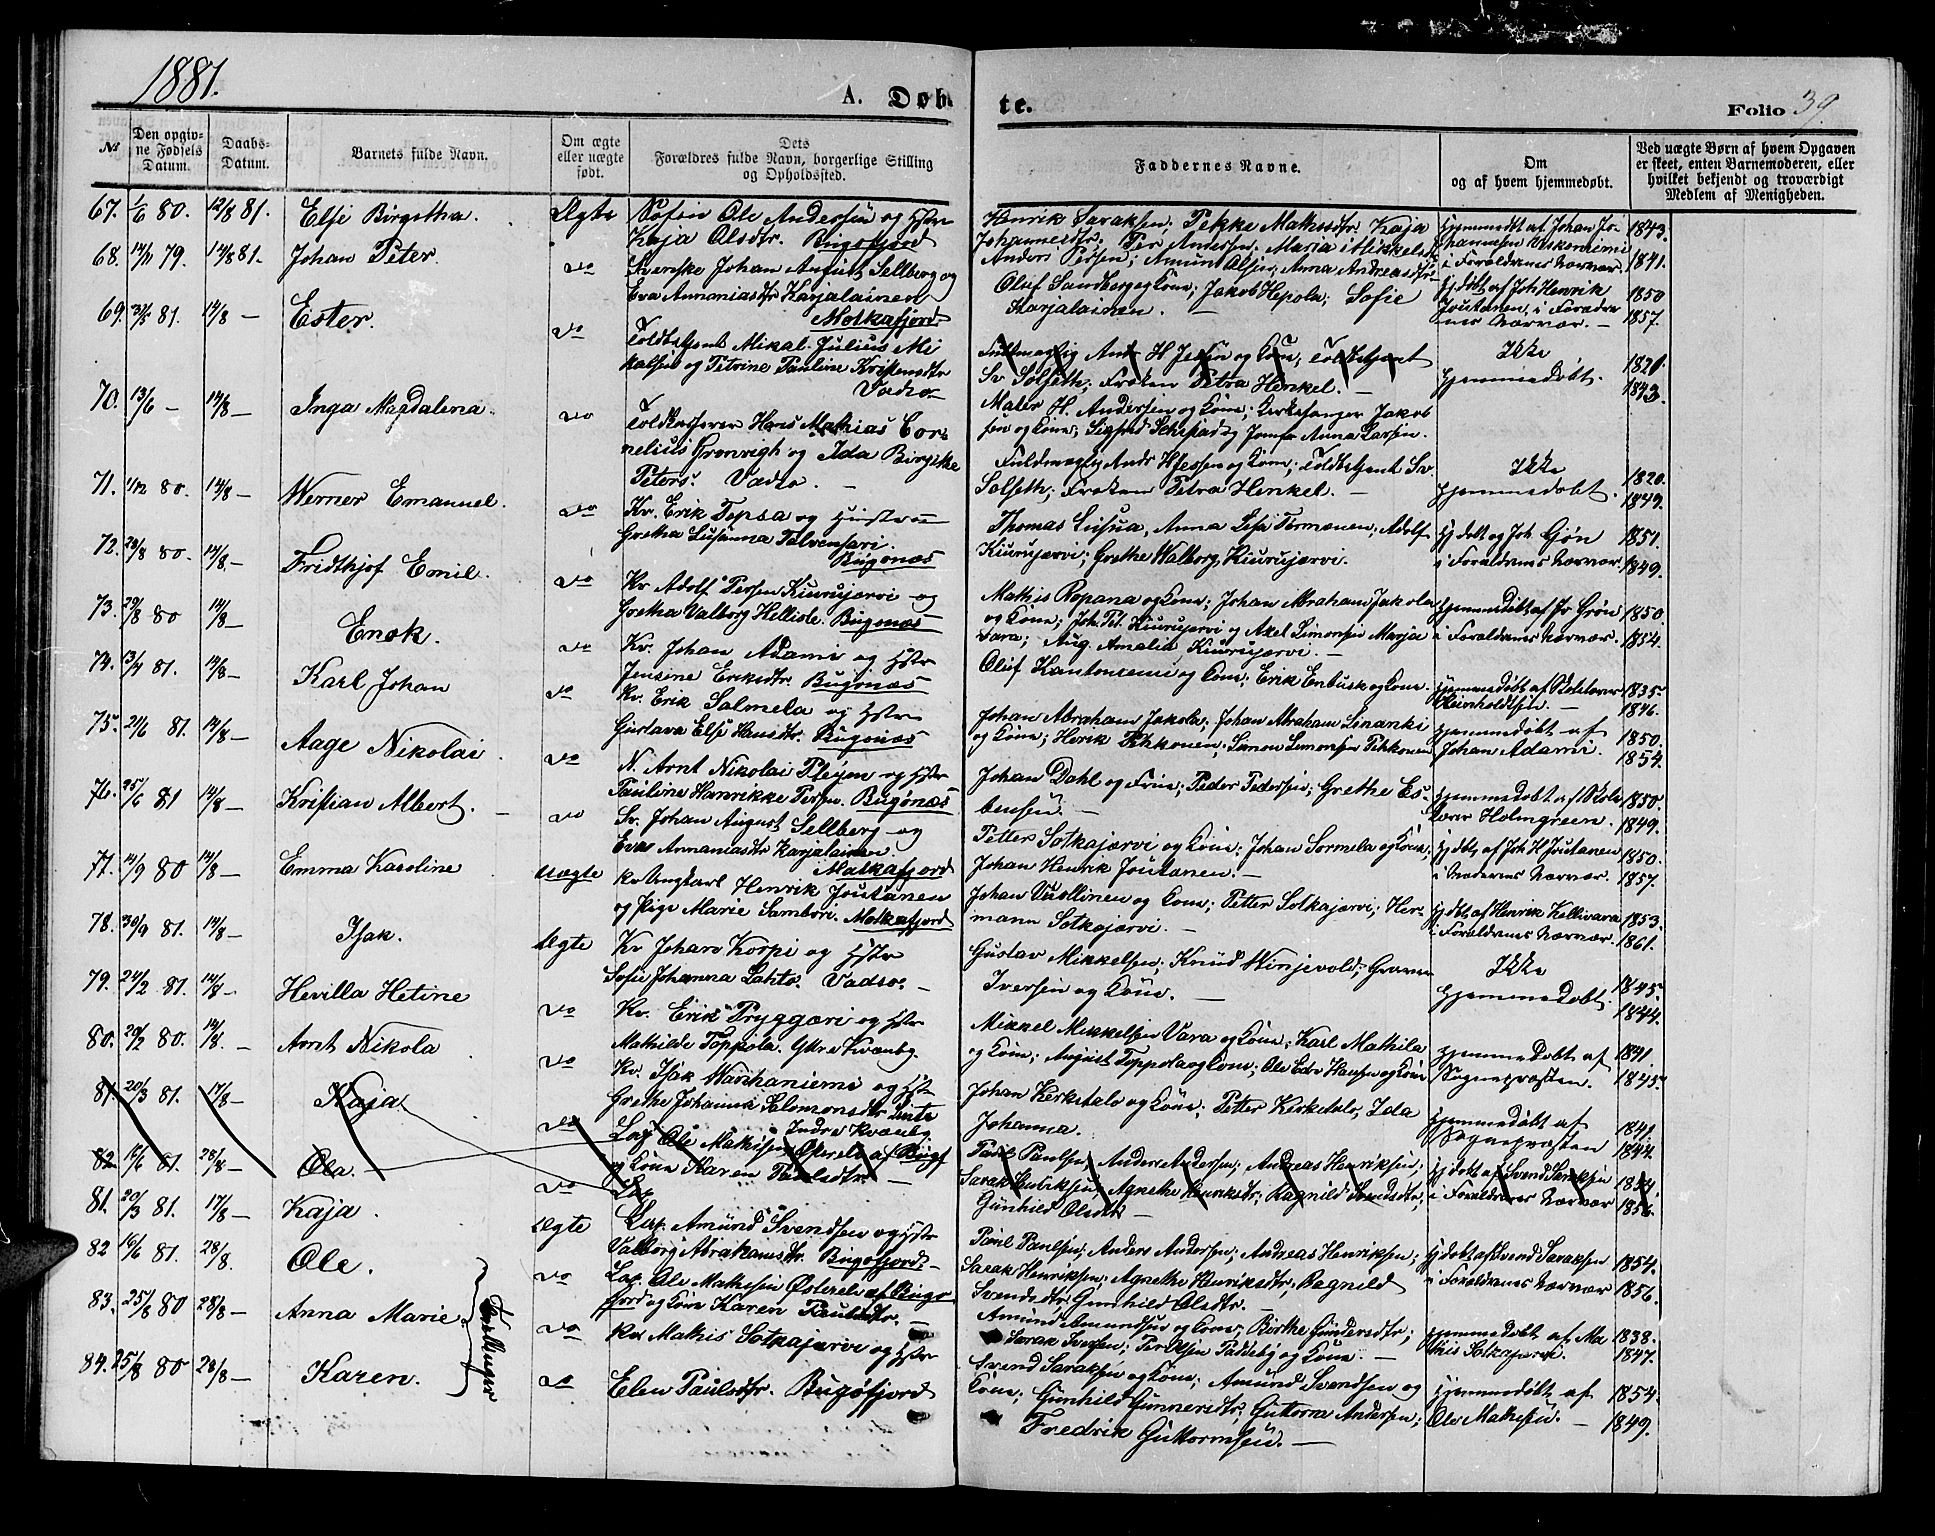 1881.
A. Døb-
te.
Folio 39.
№
Den opgiv-
ne Fødsels
Datum.
Daabs-
Datum.
Barnets fulde Navn.
Om ægte
eller uægte
født.
Dets
Forældres fulde Navn, borgerlige Stilling
og Opholdssted.
Faddernes Navne.
Om
og af hvem hjemmedøbt.
Ved uægte Børn af hvem Opgaven
er skeet, enten Barnemoderen, eller
hvilket bekjendt og troværdigt
Medlem af Menigheden.
67. 1/6 80. 12/8 81. Elsi Birgitha. Ægte
Ole Andersen og Hstr
Kaja Olsdtr. Bugofjord
Henrik Saraksen; Pekke Mathisdtr; Kaja
Johannesdtr; Per Andersen; Maria Mikkelsdtr
Anders Persen; Amun Olsen; Anna Andreasdtr
Hjemmedøbt af Johan Jo-
i Forældrenes Nærvær.
1843.
1841.
68. 14/11 79. 14/8 81. Johan Peter. do
Svenske Johan August Sellberg og
Eva Annaniasdtr Karjalainen
Molkafjord.
Oluf Sandberg og Kone; Jakob Hepola; Sofie
Karjalainen. —
Hjdøbt af Joh Henrik
Joutanen, i Forædre
nes Nærvær. —
1850
1857.
69. 81. 14/8 — Ester. do
Toldbetjent Mikal Julius Mi
kalsen og Petrine Pauline Kristensdtr
Vadsø
Fuldmægtig Andr H Jessen og Kone, Toldbetjent
Sv Solseth; Frøken Petra Henkel. —
Maler H. Andersen og Kone; Kirkesanger Jakob
sen og Kone; Sigfred Schjstad og Jomfr Anna Larsen.
Ikke
Hjemmedøbt.
1821.
1843.
70. 13/6 — 14/8 — Inga Magdalena. do
Toldkasserer Hans Mathias Cor-
nelius Grønvigh og Ida Birgitte
Peters. Vadsø. —
Fuldmægtig Andr H Jessen og Kone; Toldbetjent Sv.
Solseth; Frøken Petra Henkel. —
Ikke
Hjemmedøbt.
1820.
1849.
71. 1/12 80. 14/8 — Werner Emanuel. do
Kv. Erik Topsa og Hustru
Gretha Susanna Talvensari.
Bugønæs
Thomas Susua, Anna Lisa Tormænen; Adolf
Kiurujærvi; Grethe Walborg Kiurujærvi.
Hjdøbt og Joh Grøn
i Forældrenes Nærvær
1851.
1849.
72. 29/8 80. 14/8. — Fridthjof Emil. do
Kv Adolf Persen Kiurujærvi og
Gretha Valborg Hellisde. Bugønæs
Mathis Ropana og Kone; Johan Abraham Jakola
og Kone; Joh. Pet. Kiurujærvi og Axel Simonsen Marja
Vara; Aug. Amalia Kiurujærvi. —
Hjemmedøbt af Jo Grøn
i Forældrenes Nærvær.
1850.
1854.
73. 29/8 80 14/8 — Enok. do
Kv. Johan Adami og Hstr
Jensine Eriksdtr. Bugønæs
Oluf Kantoniemi og Kone; Erik Enbusk og Kone.
Hjemmedøbt af Skolelærer
Heinholdtsen. —
1835.
1846.
74. 13/4 81. 14/8 — Karl Johan do
Kv. Erik Salmela og Hstru
Gustava Else Hansdtr. Bugønæs
Johan Abraham Jakola; Johan Abraham Sinanki
og Kone; Henrik Pikkonen; Simon Simonsen Pikkonen
Hjemmedøbt af
Johan Adami.
1850.
1854.
75. 21/6 81. 14/8 — Aage Nikolai. do
N. Arnt Nikolai Pleyen og Hstr
Pauline Hanrikke Persen. Bugønæs
Johan Dahl og Frue; Peder Pedersen; Grethe Es-
bensen. —
Hjemmedøbt af Skole
lærer Holmgreen.
1850.
1849.
76. 25/6 81 14/8 — Kristian Albert. — do
Sv. Johan August Sellberg og
Eva Annaniasdtr Karjalainen.
Molkafjord
Petter Sotkajærvi og Kone; Johan Sormela og Kone;
Johan Henrik Joutanen. —
Hjdøbt af Joh H Joutanen
i Forældrenes Nærvær.
1850.
1857.
77. 14/9 80 14/8 — Emma Karoline uægte
Kv Ungkarl Henrik Joutanen
og Pige Marie Sambori. Molkafjord
Johan Vuollinen og Kone; Petter Sotkajærvi; Her-
mann Sotkajærvi. —
Hjdøbt af Henrik Kellivara
i Forældrenes Nærvær.
1853.
1861.
78. 30/4 81. 14/8 — Isak. Ægte
Kv Johan Korpi og Hstr
Sofie Johanna Lahto. Vadsø. —
Gustav Mikkelsen; Knud Winjevold; Grov
Iversen og Kone. —
Ikke
Hjemmedøbt.
1845.
1844.
79. 24/2 81. 14/8 — Hevilla Hetine do
Kv. Erik Pryggari og Hstr
Mathilde Toppola. Ytre Kvænby.
Mikkel Mikkelsen Vara og Kone; Karl Mathila
og Kone; August Toppola og Kone; Ole Edv Hansen og Kone
Hjemmedøbt af
Sognepræsten.
1841.
1845.
80. 20/2 80. 14/8. — Arnt Nikola do
Kv. Isak Warihaniemi og Hstr
Grethe Johanne Salomonsdtr
Indre Kvænby
Johan Kerketalo og Kone; Petter Kerketalo, Ida
Johanna.
Hjemmedøbt af
Sognepræsten
1841.
1844.
81. 20/3 81. 17/8 — Kaja. do
Lap Ole Mathisen Østerelv af Bugf
og Kone Karen Paulsdtr. —
Paul Paulsen; Anders Andersen; Andreas Henriksen;
Sarak Henriksen; Agnethe Henriksdtr; Ragnild Svendsdtr;
Gunhild Olsdtr —
Hjdøbt af Svend Saraksen
i Forældrenes Nærvær
1854.
1856.
82 16/6 81. 28/8 — Ole. — do
Lap
81. 20/3 81. 17/8 — Kaja. Ægte
Lap. Amund Svendsen og Hstr
Valborg Abrahamsdtr. Bugofjord. —
82 16/6 81. 28/8. Ole. do
Lap. Ole Mathisen Østerelv af Bugø
fjord og Kone Karen Paulsdtr. —
Paul Paulsen; Anders Andersen; Andreas Henriksen;
Sarak Henriksen; Agnethe Henriksdtr; Ragnild
Svendsdtr; Gunhild Olsdtr. —
Hjdøbt af Svend Saraksen
i Forældrenes Nærvær
1854.
1856.
83. 25/8 80 28/8 — Anna Marie. do
Kv Mathis Sotkajærvi og Hstr
Amund Amundsen og Kone; Birthe Gundersdtr;
Sarak Svensen; Paddeby og Kone. —
Hjemmedøbt af Ma
this Sotkajærvi.
1838.
1847.
Tvillinger
84. 25/8 80 28/8 — Karen. do
Elen Paulsdtr. Bugøfjord
Svend Saraksen og Kone; Amund Svendsen og
Kone; Gunhild Gunnersdtr; Guttorm Andersen;
Fredrik Guttormsen. —
Hjemmedøbt af
Ole Mathisen. —
1854.
1849.